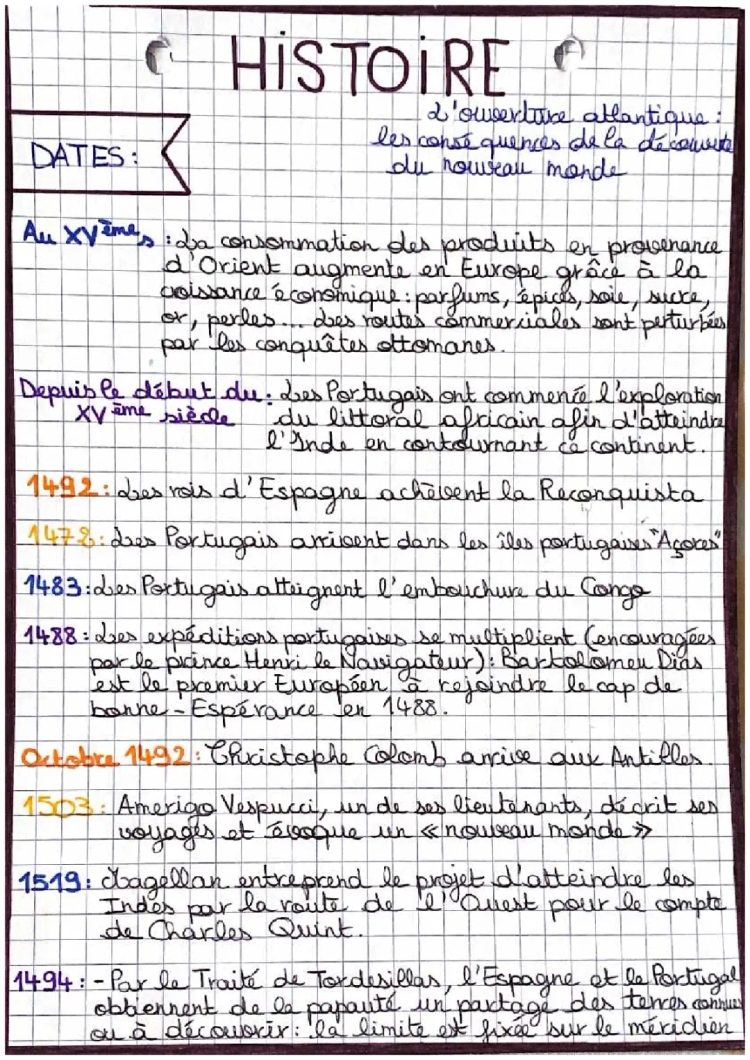 HiSTOiRE
L'ouverture atlantique :
les conséquences de la découverte
du nouveau monde
DATES :
Au XVème s : La consommation des produits en provenance
d'Orient augmente en Europe grâce à la
croissance économique : parfums, épices, soie, sucre,
or, perles... Les routes commerciales sont perturbées
par les conquêtes ottomanes.
Depuis le début du : Les Portugais ont commencé l'exploration
XVème siècle du littoral africain afin d'atteindre
l'Inde en contournant ce continent.
1492 : Les rois d'Espagne achèvent la Reconquista
1472 : Les Portugais arrivent dans les îles portugaises "Açores"
1483 : Les Portugais atteignent l'embouchure du Congo
1488 : Les expéditions portugaises se multiplient (encouragées
par le prince Henri le Navigateur) : Bartolomeu Dias
est le premier Européen à rejoindre le cap de
bonne-Espérance en 1488.
Octobre 1492 : Christophe Colomb arrive aux Antilles.
1503 : Amerigo Vespucci, un de ses lieutenants, décrit ses
voyages et évoque un « nouveau monde »
1519 : Magellan entreprend le projet d'atteindre les
Indes par la route de l'Ouest pour le compte
de Charles Quint.
1494 : - Par le Traité de Tordesillas, l'Espagne et le Portugal
obtiennent de la papauté un partage des terres connues
ou à découvrir : la limite est fixée sur le méridien